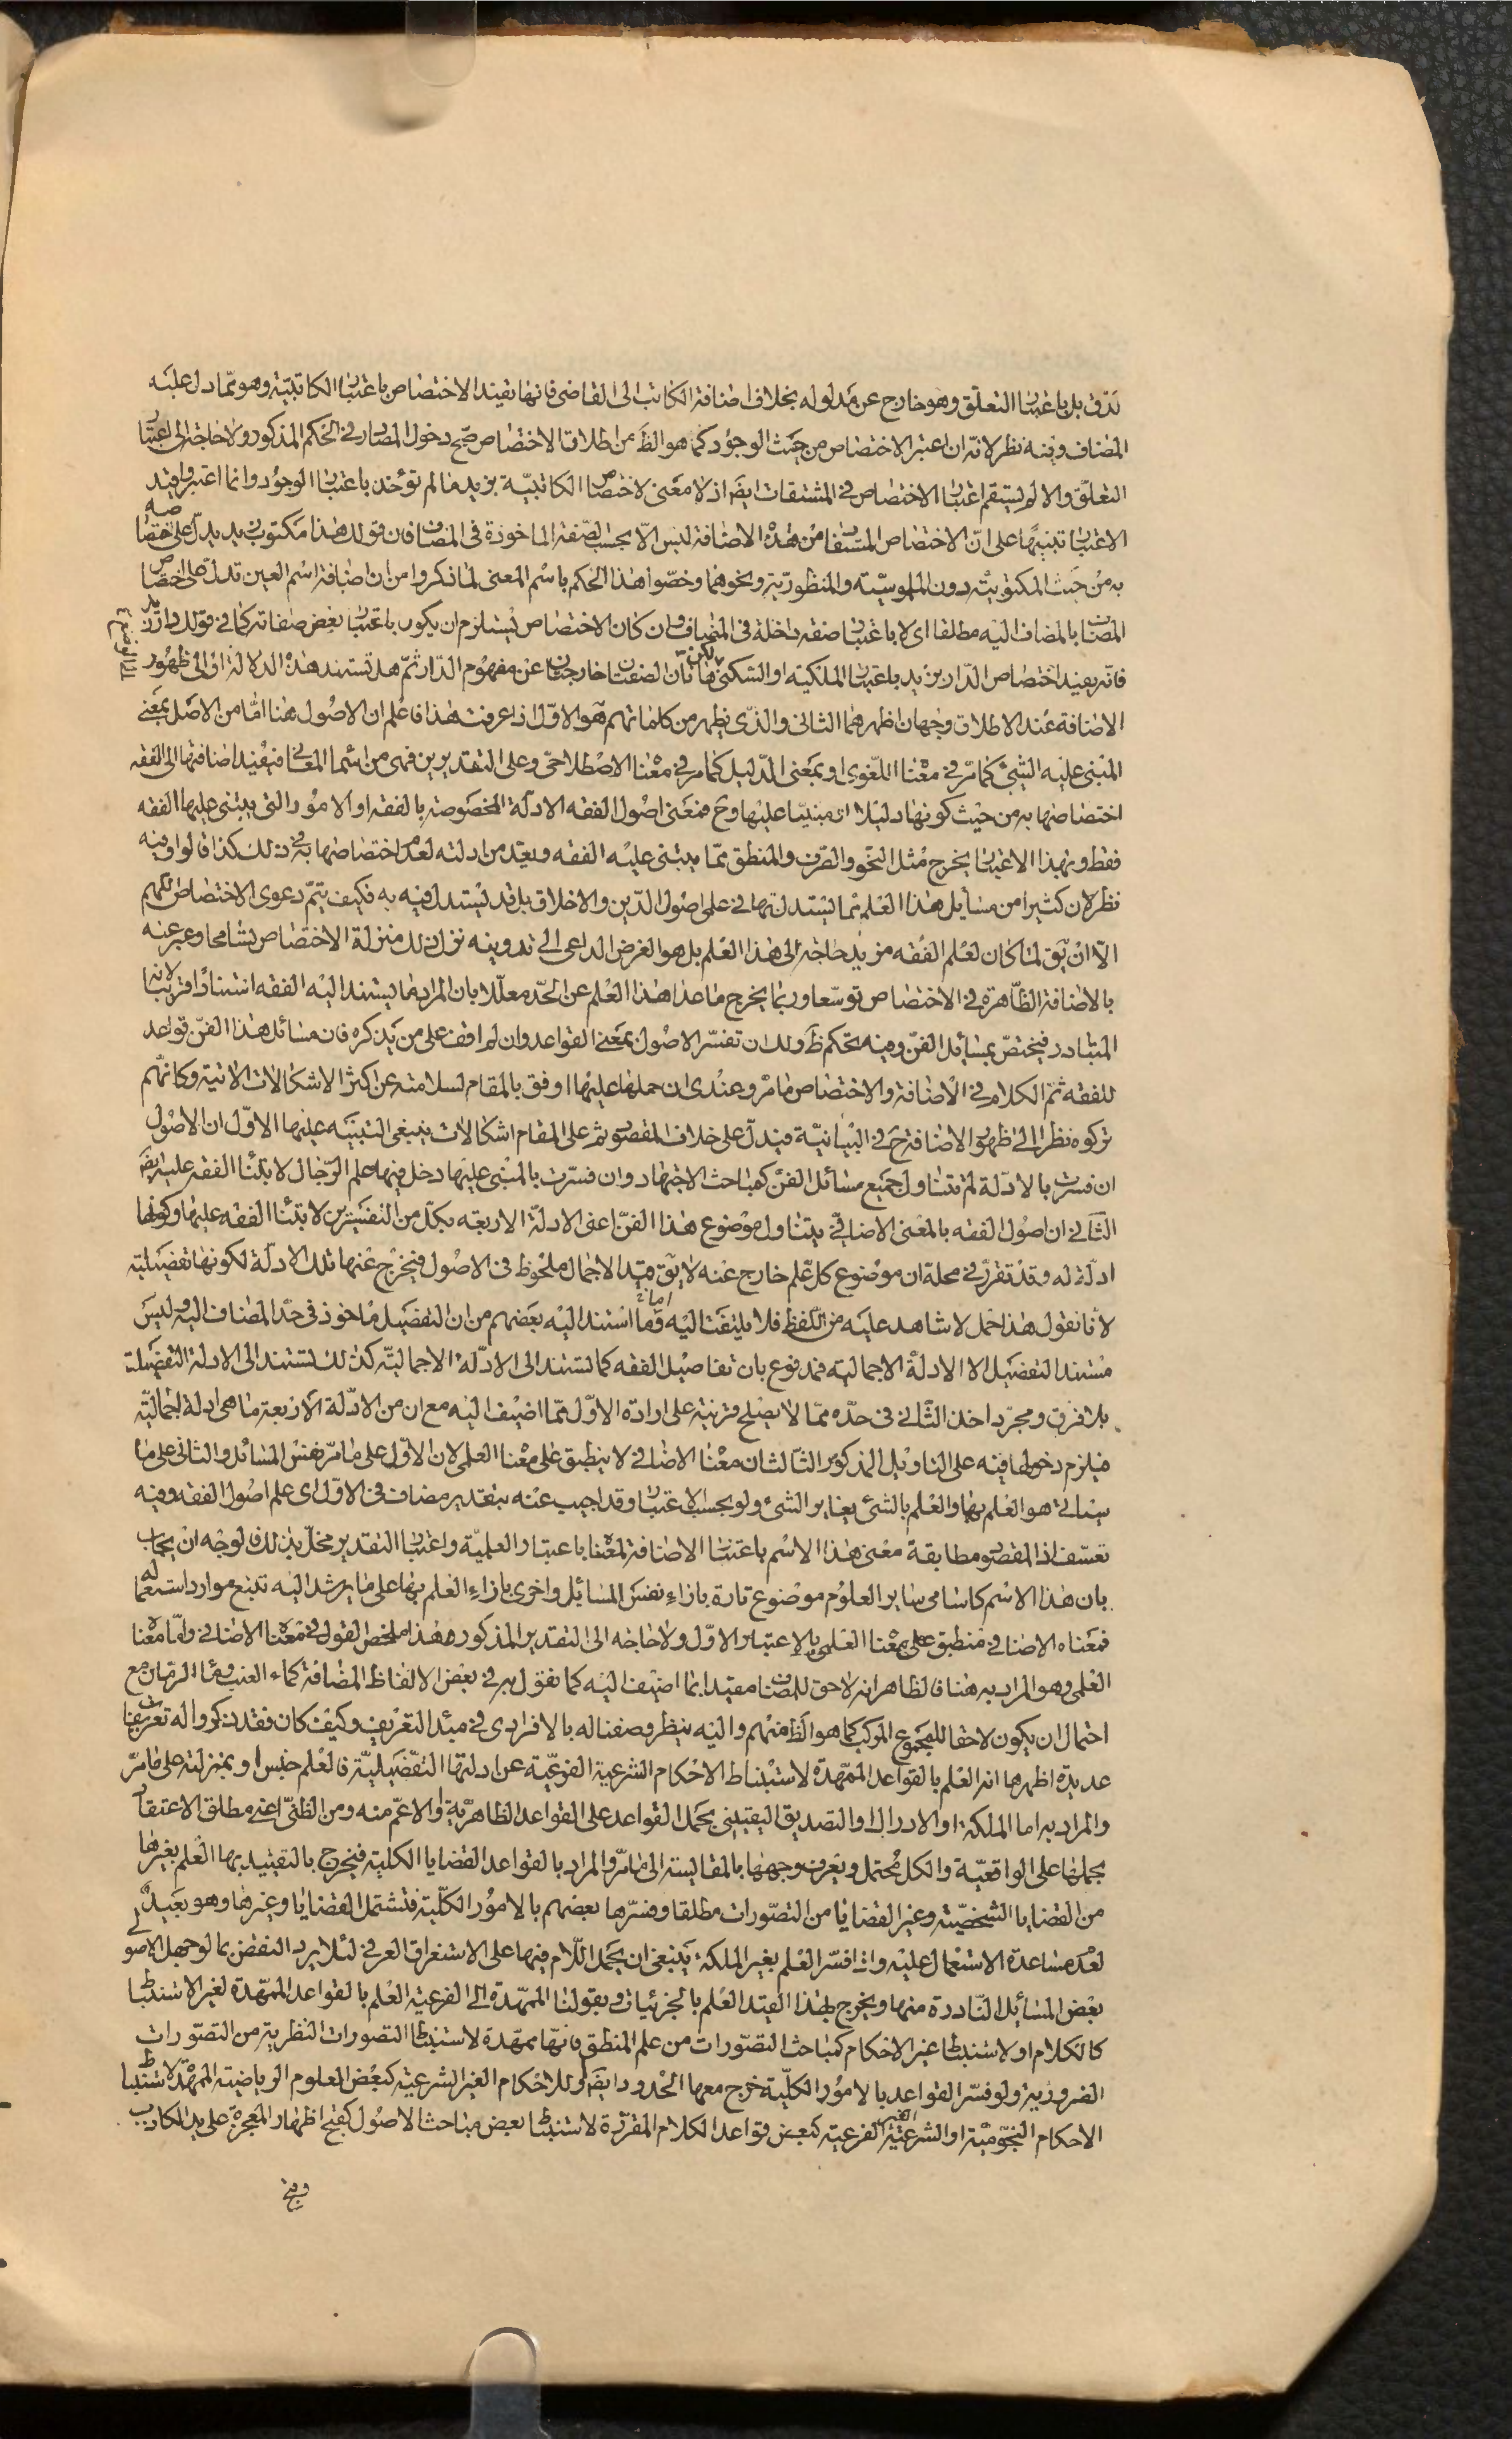 تدق بل باعتبار التعلق وهو خارج عن مدلوله بخلاف اضافة الكاتب الى القاضى فانها تفيد الاختصاص باعتبار الكاتبية وهو مما دل عليه
المضاف وفيه نظر لانه ان اعتبر الاختصاص من حيث الوجود كما هو الظ من اطلاق الاختصاص صح دخول المصادر فى الحكم المذكور ولا حاجة الى اعتبار
التعلق والا لم يستقم اعتبار الاختصاص فى المشتقات ايض اذ لا معنى لاختصاص الكاتبية بزيد ما لم تؤخذ باعتبار الوجود وانما اعتبروا قيد
الاعتبار تنبيها على ان الاختصاص المستفاد من هذه الاضافة ليس الا بحسب الصفة الماخوذة فى المضاف فان قولك هذا مكتوب زيد يدل على اختصاصه
به من حيث المكتوبية دون الملموسية والمنظورية ونحوهما وخصوا هذا الحكم باسم المعنى لما ذكروا من ان اضافة اسم العين تدل على اختصاص
المضاف بالمضاف اليه مطلقا اى لا باعتبار صفة داخلة فى المضاف وان كان الاختصاص يستلزم ان يكون باعتبار بعض صفاته كما فى قولك دار زيد
فانه يفيد اختصاص الدار بزيد باعتبار الملكية او السكنى لكن هاتان الصفتان خارجتان عن مفهوم الدار ثم هل تستند هذه الدلالة او الى ظهور
الاضافة عند الاطلاق وجهان اظهرهما الثانى والذى يظهر من كلماتهم هو الاول اذا عرفت هذا فاعلم ان الاصول هنا اما من الاصل بمعنى
المبنى عليه الشئ كما مر فى معناه اللغوى او بمعنى الدليل كما مر فى معناه الاصطلاحى وعلى التقديرين فهى من اسماء المعانى فيفيد اضافتها الى الفقه
اختصاصها به من حيث كونها دليلا او مبنيا عليها وح فمعنى اصول الفقه الادلة المخصوصة بالفقه او الامور التى يبتنى عليها الفقه
فقط وبهذا الاعتبار يخرج مثل النحو والصرف والمنطق مما يبتنى عليه الفقه ويعد من ادلته لعدم اختصاصها به فى ذلك كذا قالوا وفيه
نظر لان كثيرا من مسائل هذا العلم مما يستدل بها فى علمى اصول الدين والاخلاق بل قد يستدل فيه به فكيف يتم دعوى الاختصاص اللهم
الا ان يق لما كان لعلم الفقه مزيد حاجة الى هذا العلم بل هو الغرض الداعى الى تدوينه نزل ذلك منزلة الاختصاص تسامحا وعبر عنه
بالاضافة الظاهرة فى الاختصاص توسعا وربما يخرج ما عدا هذا العلم عن الحد معللا بان المراد ما يستند اليه الفقه استنادا قريبا لانه
المتبادر فيختص بمسائل الفن وفيه تحكم ظ ولك ان تفسر الاصول بمعنى القواعد وان لم اقف على من يذكره فان مسائل هذا الفن قواعد
للفقه ثم الكلام فى الاضافة والاختصاص ما مر وعندى ان حملها عليها اوفق بالمقام لسلامته عن اكثر الاشكالات الاتية وكانهم
تركوه نظرا الى ظهور الاضافة ح فى البيانية فيدل على خلاف المقصود ثم على المقام اشكالات ينبغى التنبيه عليها الاول ان الاصول
ان فسرت بالادلة لم تتناول جميع مسائل الفن كمباحث الاجتهاد وان فسرت بالمبنى عليها دخل فيها علم الرجال لابتناء الفقه عليه ايض
الثانى ان اصول الفقه بالمعنى الاضافى يتناول موضوع هذا الفن اعنى الادلة الاربعة بكل من التفسيرين لابتناء الفقه عليها وكونها
ادلة له وقد تقرر فى محله ان موضوع كل علم خارج عنه لا يق قيد الاجمال ملحوظ فى الاصول فيخرج عنها تلك الادلة لكونها تفصيلية
لانا نقول هذا حمل لا شاهد عليه من اللفظ فلا يلتفت اليه واما ما استند اليه بعضهم من ان التفصيل ماخوذ فى حد المضاف اليه وليس
مستند التفصيل الا الادلة الاجمالية فمدفوع بان تفاصيل الفقه كما تستند الى الادلة الاجمالية كذلك تستند الى الادلة التفصيلية
بلا فرق ومجرد اخذ الثانى فى حده مما لا يصلح قرينة على ارادة الاول مما اضيف اليه مع ان من الادلة الاربعة ما هى ادلة اجمالية
فيلزم دخولها فيه على التاويل المذكور الثالث ان معناه الاضافى لا ينطبق على معناه العلمى لان الاول على ما مر نفس المسائل والثانى على ما
سياتى هو العلم بها والعلم بالشئ يغاير الشئ ولو بحسب الاعتبار وقد اجيب عنه بتقدير مضاف فى الاول اى علم اصول الفقه وفيه
تعسف اذ المقصود مطابقة معنى هذا الاسم باعتبار الاضافة لمعناه باعتبار العلمية واعتبار التقدير مخل بذلك فالوجه ان يجاب
بان هذا الاسم كاسامى ساير العلوم موضوع تارة بازاء نفس المسائل واخرى بازاء العلم بها على ما يرشد اليه تتبع موارد استعماله
فمعناه الاضافى منطبق على معناه العلمى بالاعتبار الاول ولا حاجة الى التقدير المذكور هذا ملخص القول فى معناه الاضافى واما معناه
العلمى وهو المراد به هنا فالظاهر انه لاحق للمضاف مقيدا بما اضيف اليه كما نقول به فى بعض الالفاظ المضافة كماء العنب وماء الرمان مع
احتمال ان يكون لاحقا للمجموع المركب كما هو الظ منهم واليه ينظر وصفنا له بالافرادى فى مبدء التعريف وكيف كان فقد ذكروا له تعريفات
عديدة اظهرها انه العلم بالقواعد الممهدة لاستنباط الاحكام الشرعية الفرعية عن ادلتها التفصيلية فالعلم جنس او بمنزلته على ما مر
والمراد به اما الملكة او الادراك او التصديق اليقينى بحمل القواعد على القواعد الظاهرية او الاعم منه ومن الظنى اعنى مطلق الاعتقاد
بحملها على الواقعية والكل محتمل ويعرف وجهها بالمقايسة الى ما مر والمراد بالقواعد القضايا الكلية فيخرج بالتقييد بها العلم بغيرها
من القضايا الشخصية وغير القضايا من التصورات مطلقا وفسرها بعضهم بالامور الكلية فتشتمل القضايا وغيرها وهو بعيد
لعدم مساعدة الاستعمال عليه واذا فسر العلم بغير الملكة فينبغى ان يحمل اللام فيها على الاستغراق العرفى لئلا يرد النقض بما لو جهل الاصولى
بعض المسائل النادرة منها ويخرج بهذا القيد العلم بالجزئيات وبقولنا الممهدة الى الفرعية العلم بالقواعد الممهدة لغير الاستنباط
كالكلام او لاستنباط غير الاحكام كمباحث التصورات من علم المنطق فانها ممهدة لاستنباط التصورات النظرية من التصورات
الضرورية ولو فسر القواعد بالامور الكلية خرج معها الحدود ايض او للاحكام الغير الشرعية كبعض العلوم الرياضية الممهدة لاستنباط
الاحكام النجومية او الشرعية الغير الفرعية كبعض قواعد الكلام المقررة لاستنباط بعض مباحث الاصول كقبح اظهار المعجزة على يد الكاذب